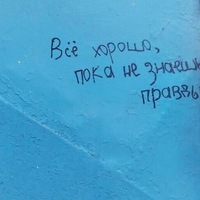 Всё хорошо,
пока не знаешь
правды